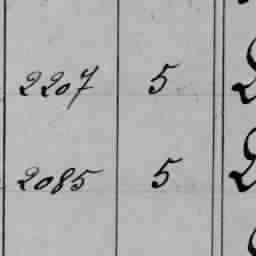 2207 5
2085 5